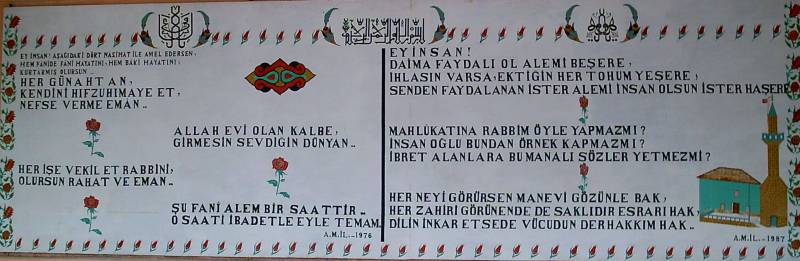 EY İNSAN! AŞAĞIDAKİ DÖRT NASİHAT İLE AMEL EDERSEN,
HEM FANİDE FANİ HAYATINI, HEM BAKİ HAYATINI,
KURTARMIŞ OLURSUN..
HER GÜNAHTAN,
KENDİNİ HIFZUHİMAYE ET,
NEFSE VERME EMAN..
ALLAH EVİ OLAN KALBE,
GİRMESİN SEVDİĞİN DÜNYAN..
HER İŞE VEKİL ET RABBİNİ,
OLURSUN RAHAT VE EMAN..
ŞU FANİ ALEM BİR SAATTİR..
O SAATİ İBADETLE EYLE TEMAM..
A.M.İL.-1976
EY İNSAN!
DAİMA FAYDALI OL ALEMİ BEŞERE,
İHLASIN VARSA, EKTİĞİN HER TOHUM YEŞERE,
SENDEN FAYDALANAN İSTER ALEMİ İNSAN OLSUN İSTER HAŞERE
MAHLÛKATINA RABBİM ÖYLE YAPMAZMI?
İNSAN OĞLU BUNDAN ÖRNEK KAPMAZMI?
İBRET ALANLARA BU MANALI SÖZLER YETMEZMİ?
HER NEYİ GÖRÜRSEN MANEVİ GÖZÜNLE BAK,
HER ZAHİRİ GÖRÜNENDE DE SAKLIDIR ESRARI HAK,
DİLİN İNKAR ETSEDE VÜCUDUN DER HAKKIM HAK..
A.M.İL.-1987